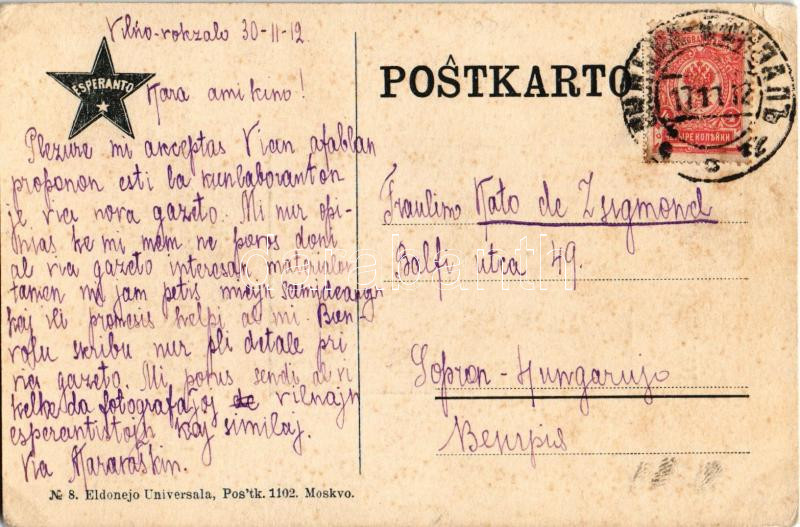 Vilno-vokzalo 30-11-12.
ESPERANTO
Kara amikino!
Plezure mi akceptas Vian afablan
proponon esti la kunlaboranton
je via nova gazeto. Mi nur opi-
nias ke mi mem ne povos doni
al via gazeto interesan materialon
tamen mi jam petis miajn samideanojn
kaj ili promesis helpi al mi. Bon-
volu skribu nur pli detale pri
via gazeto. Mi povus sendi al vi
kelke da fotografaĵoj de vilnajn
esperantistojn kaj similaj.
Via
№ 8. Eldonejo Universala, Pos'tk. 1102. Moskvo.
POŜTKARTO
17 11 12
Fraulino Kato de Zsigmond
Balfi utca 49.
Sopron - Hungarujo
Венгрія
darabanth